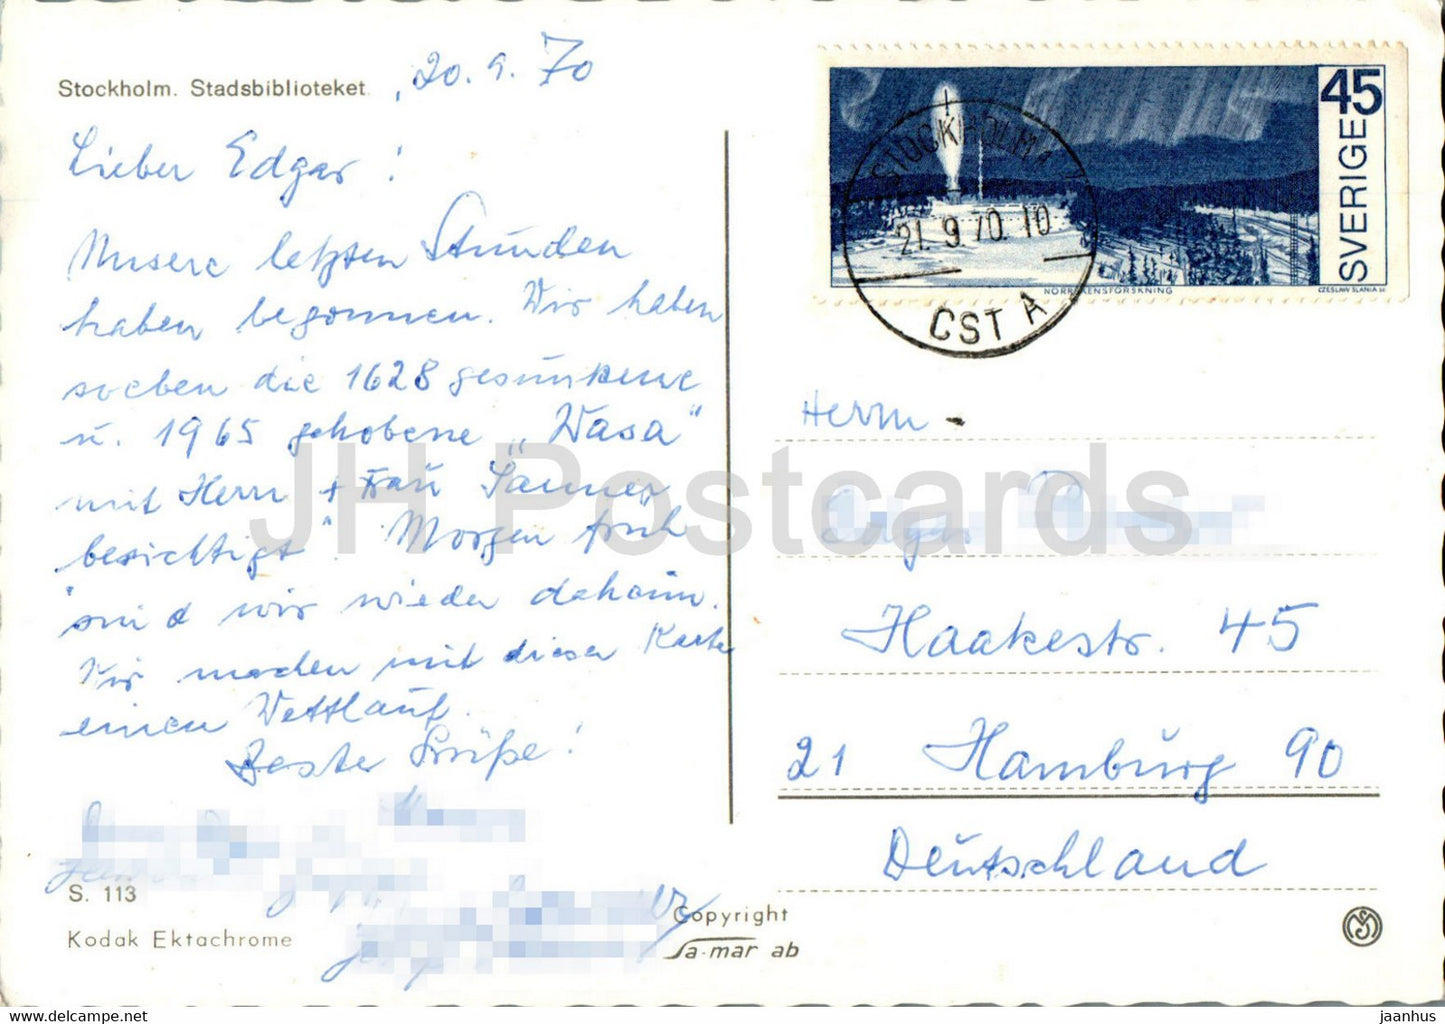 Stockholm. Stadsbiblioteket
20.9.70
Lieber Edgar!
Unsere letzten Stunden
haben begonnen. Wir haben
soeben die 1628 gesunkene
u. 1965 gehobene „Wasa"
mit Herrn + Frau Sanner
besichtigt. Morgen früh
sind wir wieder daheim.
Wir machen mit dieser Karte
einen Wettlauf.
Beste Grüße!
S. 113
Kodak Ektachrome
Copyright
Sa-mar ab
45
SVERIGE
NORRSKENSFORSKNING
CZESLAW SLANIA SC
STOCKHOLM 1
21.9.70.10
CST A
Herrn
Edgar
Haakestr. 45
21 Hamburg 90
Deutschland
JH Postcards
www.delcampe.net
jaanhus